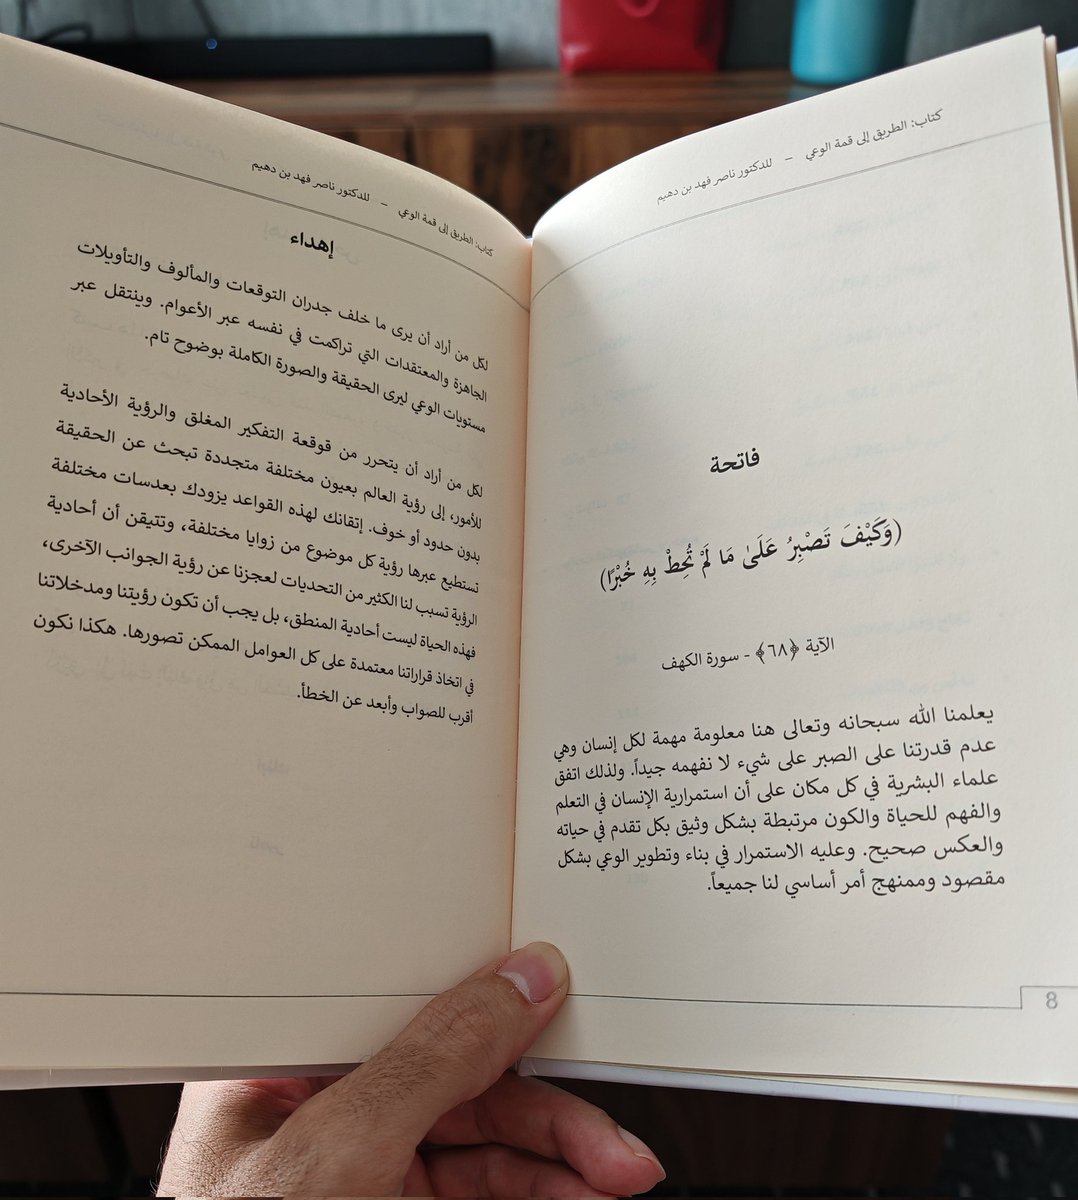 كتاب: الطريق إلى قمة الوعي – للدكتور ناصر فهد بن دهيم
فاتحة
(وَكَيْفَ تَصْبِرُ عَلَىٰ مَا لَمْ تُحِطْ بِهِ خُبْرًا)
الآية ﴿٦٨﴾ - سورة الكهف
يعلمنا الله سبحانه وتعالى هنا معلومة مهمة لكل إنسان وهي
عدم قدرتنا على الصبر على شيء لا نفهمه جيداً. ولذلك اتفق
علماء البشرية في كل مكان على أن استمرارية الإنسان في التعلم
والفهم للحياة والكون مرتبطة بشكل وثيق بكل تقدم في حياته
والعكس صحيح. وعليه الاستمرار في بناء وتطوير الوعي بشكل
مقصود وممنهج أمر أساسي لنا جميعاً.
8
كتاب: الطريق إلى قمة الوعي – للدكتور ناصر فهد بن دهيم
إهداء
لكل من أراد أن يرى ما خلف جدران التوقعات والمألوف والتأويلات
الجاهزة والمعتقدات التي تراكمت في نفسه عبر الأعوام. وينتقل عبر
مستويات الوعي ليرى الحقيقة والصورة الكاملة بوضوح تام.
لكل من أراد أن يتحرر من قوقعة التفكير المغلق والرؤية الأحادية
للأمور، إلى رؤية العالم بعيون مختلفة متجددة تبحث عن الحقيقة
بدون حدود أو خوف. إتقانك لهذه القواعد يزودك بعدسات مختلفة
تستطيع عبرها رؤية كل موضوع من زوايا مختلفة، وتتيقن أن أحادية
الرؤية تسبب لنا الكثير من التحديات لعجزنا عن رؤية الجوانب الآخرى،
فهذه الحياة ليست أحادية المنطق، بل يجب أن تكون رؤيتنا ومدخلاتنا
في اتخاذ قراراتنا معتمدة على كل العوامل الممكن تصورها. هكذا نكون
أقرب للصواب وأبعد عن الخطأ.